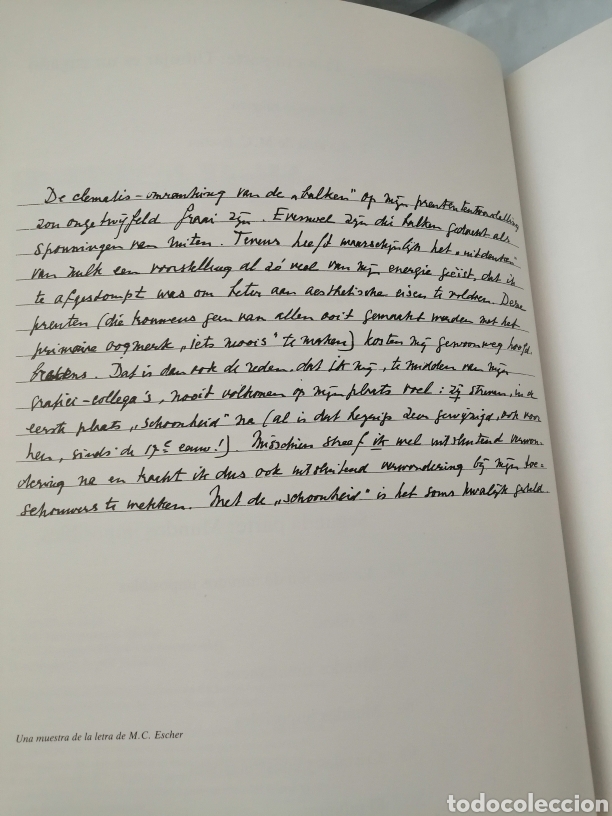 De clematis-omranking van de „balken" op mijn prententententoonstelling
zou ongetwijfeld fraai zijn. Evenwel zijn die balken gedacht als
sponningen van ruiten. Tevens heeft waarschijnlijk het „uitdenken"
van zulk een voorstelling al zó veel van mijn energie geëist, dat ik
te afgestompt was om beter aan aesthetische eisen te voldoen. Deze
prenten (die trouwens geen van allen ooit gemaakt werden met het
primaire oogmerk „iets moois" te maken) kosten mij gewoonweg hoofd-
brekens. Dat is dan ook de reden, dat ik mij, te midden van mijn
grafici-collega's, nooit volkomen op mijn plaats voel: zij streven, in de
eerste plaats „schoonheid" na (al is dat begrip zeer gewijzigd, ook voor
hen, sinds de 17e eeuw!). Misschien streef ik wel uitsluitend verwon-
dering na en tracht ik dus ook uitsluitend verwondering bij mijn toe-
schouwers te wekken. Met de „schoonheid" is het soms kwalijk gesteld.
Una muestra de la letra de M.C. Escher
todocoleccion